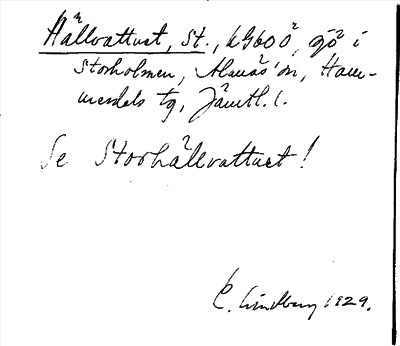 Hällvattnet, St., k9600, sjö i
Storholmen, Alanäs sn, Ham-
merdals tg, Jämtl. l.
Se Storhällvattnet!
C. Lindberg 1929.